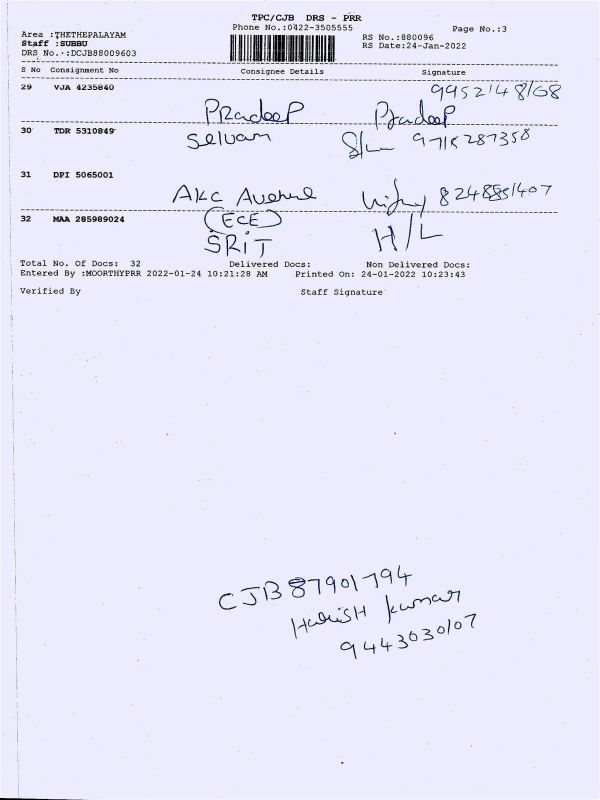 TPC/CJB DRS - PRR
Phone No.:0422-3505555 Page No.:3
Area :THETHEPALAYAM
Staff :SUBBU
DRS No.:DCJB88009603
RS No.:880096
RS Date:24-Jan-2022
S No Consignment No Consignee Details Signature
29 VJA 4235840 9952148168
PRadeep Pradeep
30 TDR 5310849
Selvam 9715287358
31 DPI 5065001
AKC Avenue
32 MAA 285989024 (ECE)
SRiT H/L
Total No. Of Docs: 32 Delivered Docs: Non Delivered Docs:
Entered By :MOORTHYPRR 2022-01-24 10:21:28 AM Printed On: 24-01-2022 10:23:43
Verified By Staff Signature
CJB 87901794
HaRiSH kumar
9443030107